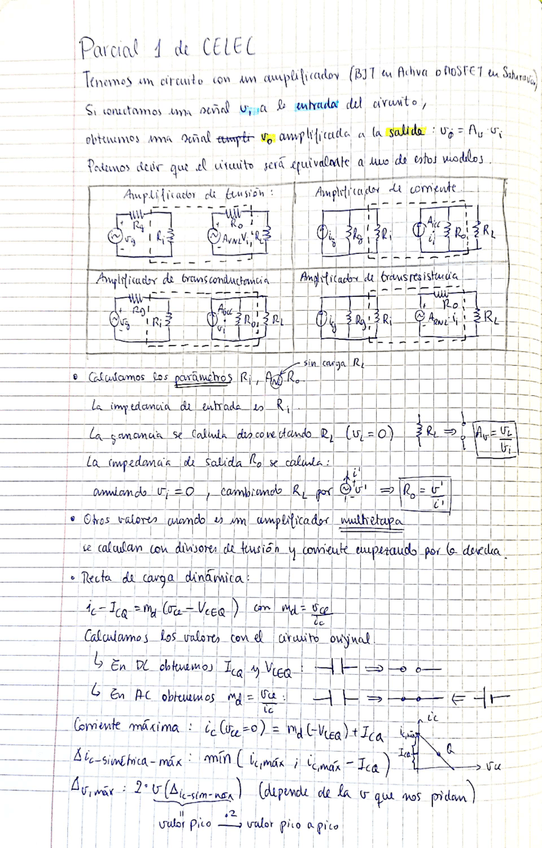 Parcial 1 de CELEC
Tenemos un circuito con un amplificador (BJT en Activa o MOSFET en Saturación)
Si conectamos una señal vi a la entrada del circuito,
obtenemos una señal vo amplificada a la salida: vo = Av vi
Podemos decir que el circuito será equivalente a uno de estos modelos.
Amplificador de tensión:
Rg vg Ri Ro AvNL Vi RL
Amplificador de corriente
ig Rg Ri Aicc ii Ro RL
Amplificador de transconductancia
Rg vg Ri vi Ro RL
Amplificador de transresistencia
ig Rg Ri Ro ARNL·ii RL
sin carga RL
• Calculamos los parámetros Ri, ANL Ro
La impedancia de entrada es Ri
La ganancia se calcula desconectando RL (vL=0) RL ⇒ Av = vL/vi
La impedancia de salida Ro se calcula:
anulando vi=0, cambiando RL por v' i' ⇒ Ro = v'/i'
• Otros valores cuando es un amplificador multietapa
se calculan con divisores de tensión y corriente empezando por la derecha.
• Recta de carga dinámica:
ic - ICQ = md (vce - VCEQ) con md = vce/ic
Calculamos los valores con el circuito original
↳ En DC obtenemos ICQ y VCEQ: ⇒
↳ En AC obtenemos md = vce/ic : ⇒ ⇐
Corriente máxima: ic(vce=0) = md(-VCEQ) + ICQ
ic ic,máx ICQ Q vce
Δic-simétrica-máx: mín (ic,máx ; ic,máx - ICQ)
Δv,máx : 2·v(Δic-sim-máx) (depende de la v que nos pidan)
valor pico ·2→ valor pico a pico